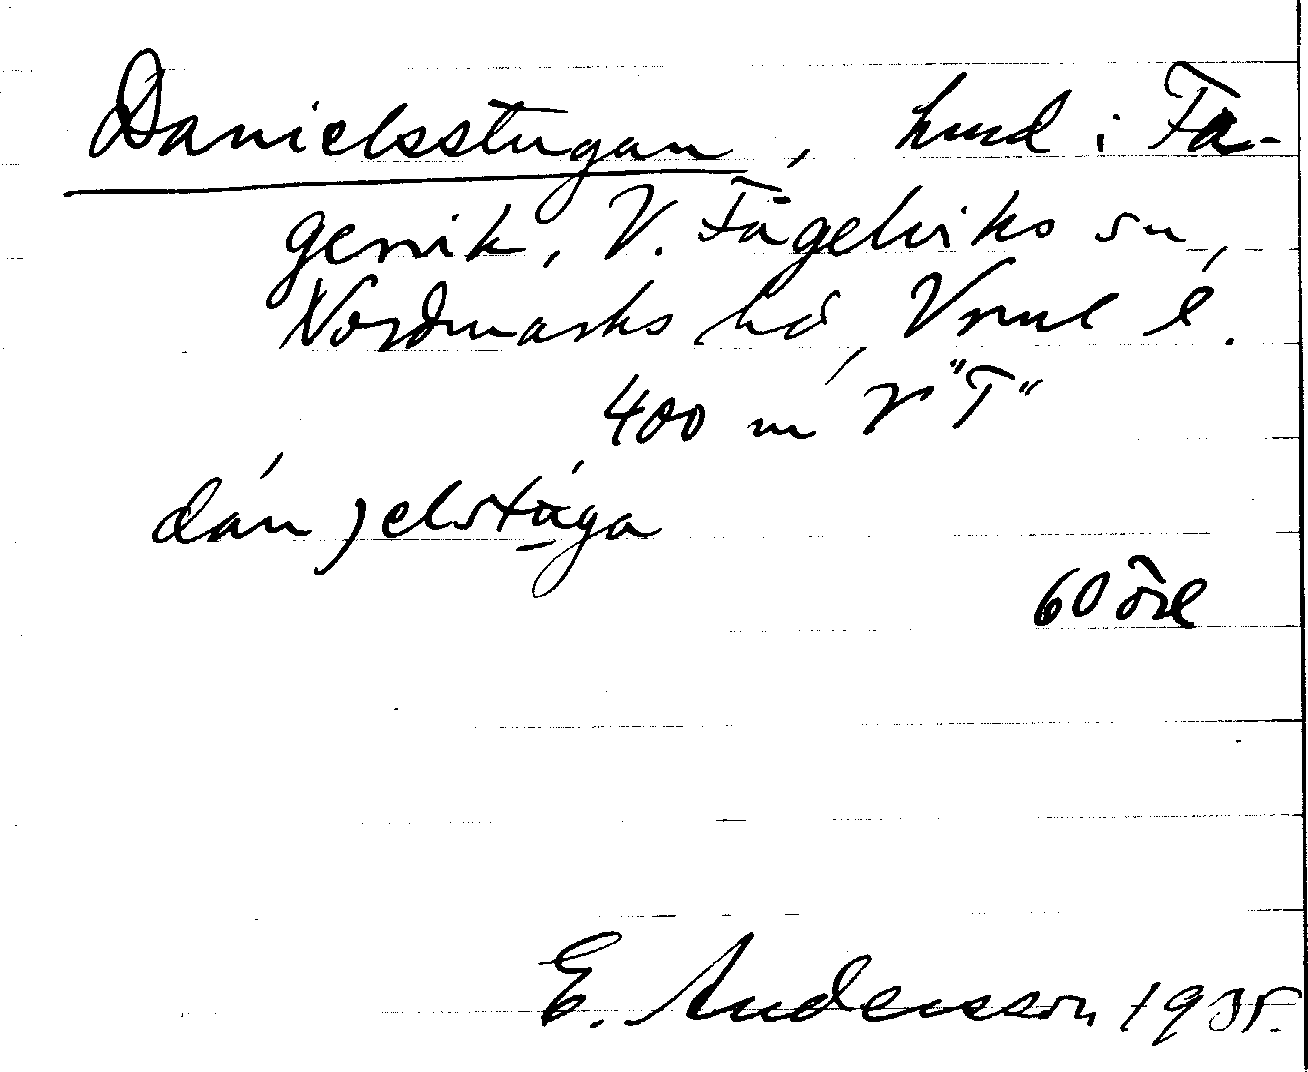 Danielsstugan, hmd i Fa-
gervik, V. Fågelviks sn,
Nordmarks hd, Vrml l.
400 m V "T"
dánjelstu̱ga
60 öre
E. Andersson 1935.